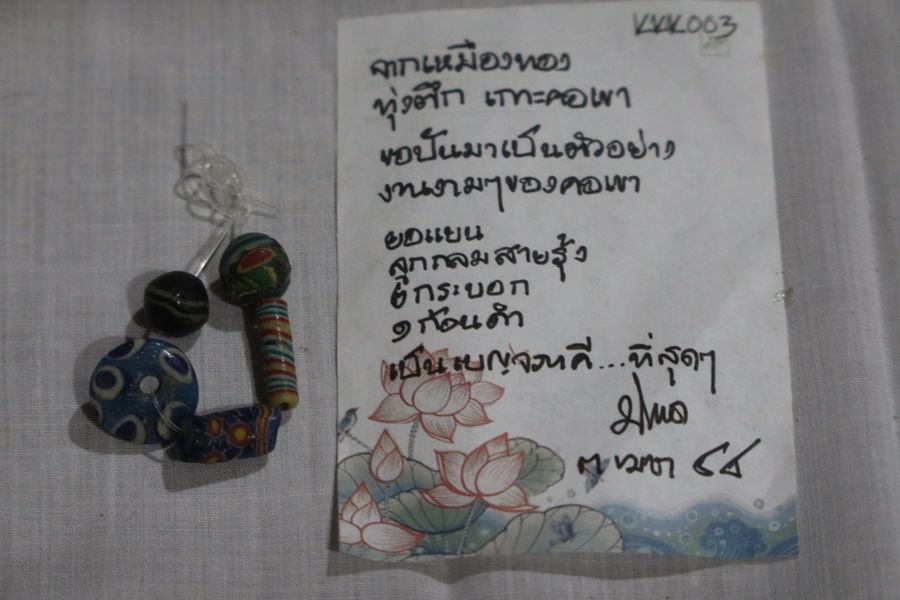 KKK003
จากเหมืองทอง
ทุ่งตึก เกาะคอเขา
ขอปันมาเป็นตัวอย่าง
งานงามๆของคอเขา
ยอแยน
ลูกกลมสายรุ้ง
๒ กระบอก
๑ ก้อนดำ
เป็นเบญจภาคี...ที่สุดๆ
๓ เมษา ๕๕